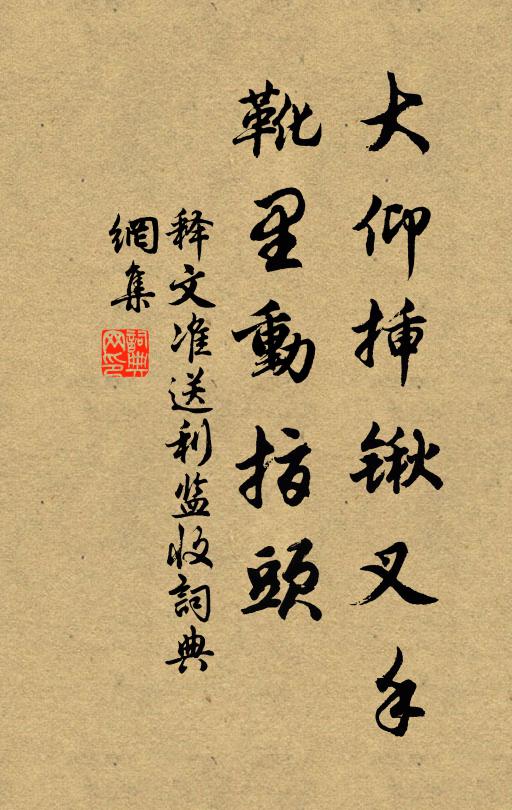 大仰插锹叉手
靴里動指頭
释文准送利监收詞典
網集
詞典网印